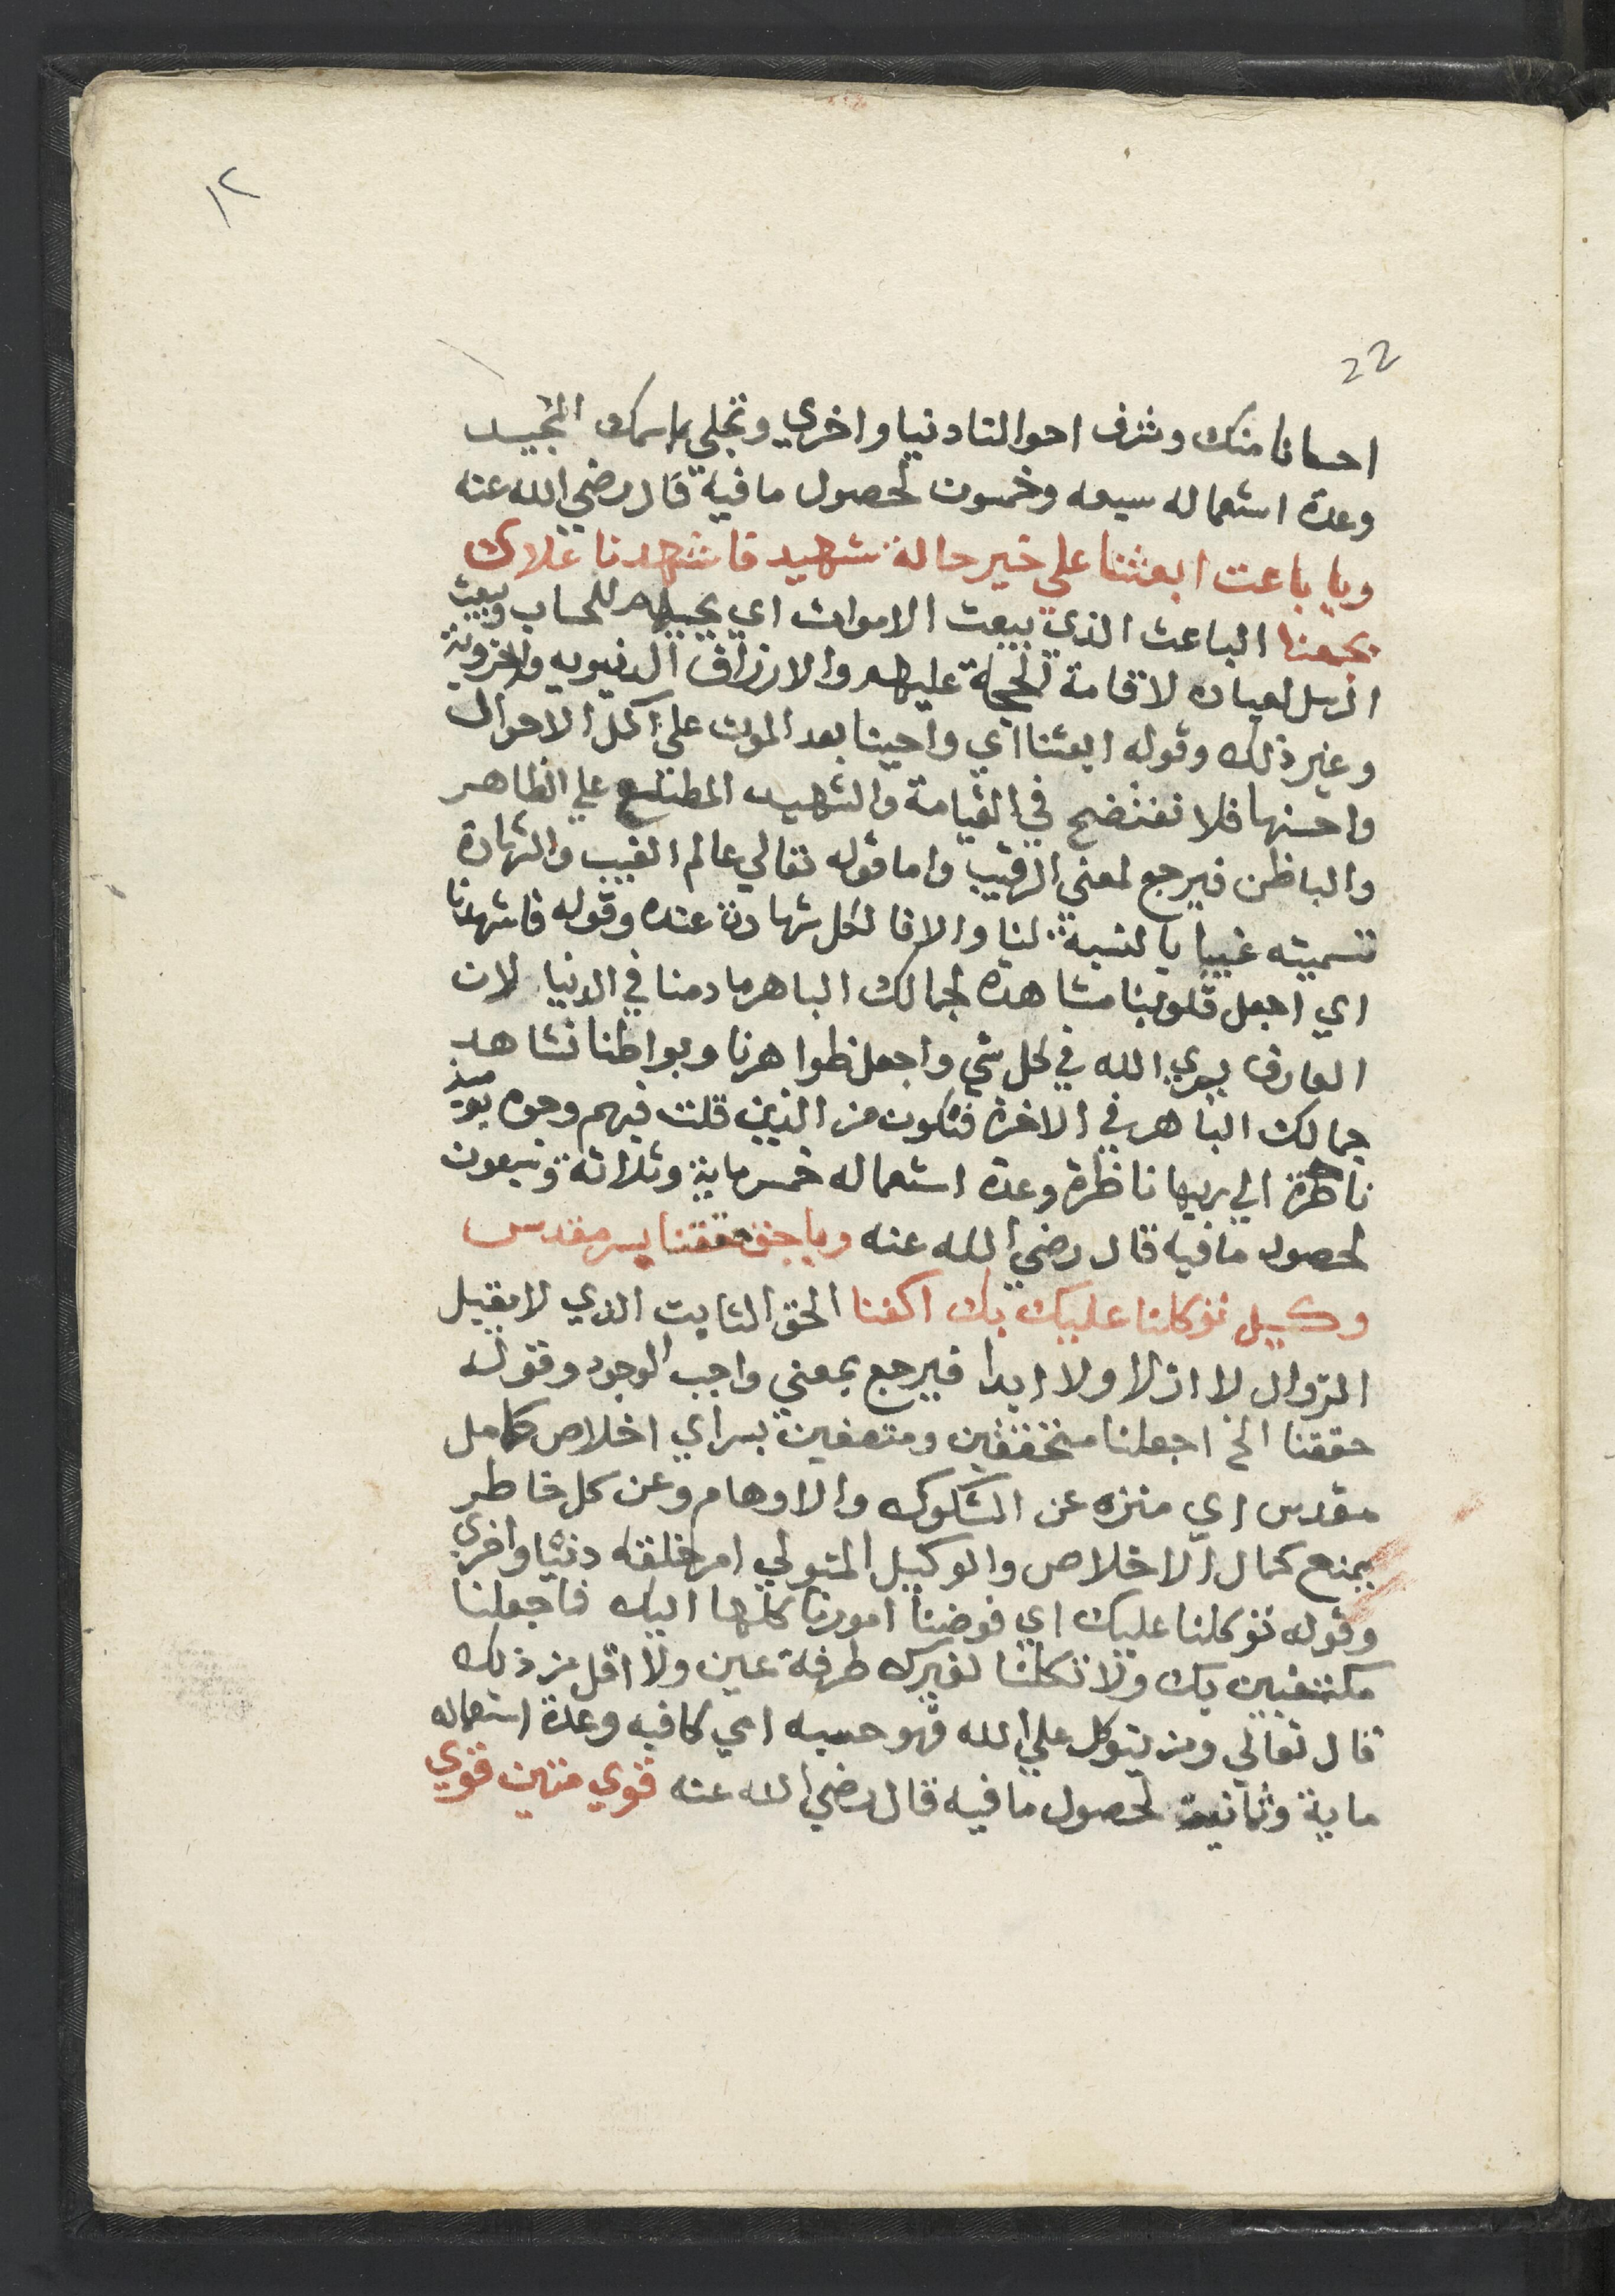 ١٢
22
احسانا منك وشرف احوالنا دنيا واخري وتجلي باسمك المجيد
وعدة استعماله سبعه وخمسون لحصول ما فيه قال رضي الله عنه
ويا باعث ابعثنا علي خير حالة شهيد فاشهدنا علاك
بجمعنا الباعث الذي يبعث الاموات اي يحييهم للحساب ويبعث
الرسل لعباده لاقامة الحجة عليهم والارزاق الدنيويه والاخروية
وغير ذلك وقوله ابعثنا اي واحينا بعد الموت علي اكمل الاحوال
واحسنها فلا نفتضح في القيامة والشهيد المطلع علي الظاهر
والباطن فيرجع لمعني الرقيب واما قوله تعالي عالم الغيب والشهادة
تسميته غيبا بالنسبة لنا والا فالكل شهادة عنده وقوله فاشهدنا
اي اجعل قلوبنا مشاهدة لجمالك الباهر ما دمنا في الدنيا لان
العارف يري الله في كل شي واجعل ظواهرنا وبواطنا نشاهد
جمالك الباهر في الاخرة فنكون من الذين قلت فيهم وجوه يوميذ
ناظرة الي ربها ناظرة وعدة استعماله خمسماية وثلاثة وتسعون
لحصول ما فيه قال رضي الله عنه ويا حق حققنا بسر مقدس
وكيل توكلنا عليك بك اكفنا الحق الثابت الذي لا يقبل
الزوال لا ازلا ولا ابدا فيرجع بمعني واجب الوجود وقوله
حققنا الخ اجعلنا متحققين ومتصفين بسر اي اخلاص كامل
مقدس اي منزه عن الشكوك والاوهام وعن كل خاطر
يمنع كمال الاخلاص والوكيل المتولي امر خلقه دنيا واخري
وقوله توكلنا عليك اي فوضنا امورنا كلها اليك فاجعلنا
مكتفين بك ولا تكلنا لغيرك طرفة عين ولا اقل من ذلك
قال تعالي ومن يتوكل علي الله فهو حسبه اي كافيه وعدة استعماله
ماية وثمانيت لحصول ما فيه قال رضي الله عنه قوي متين قوي